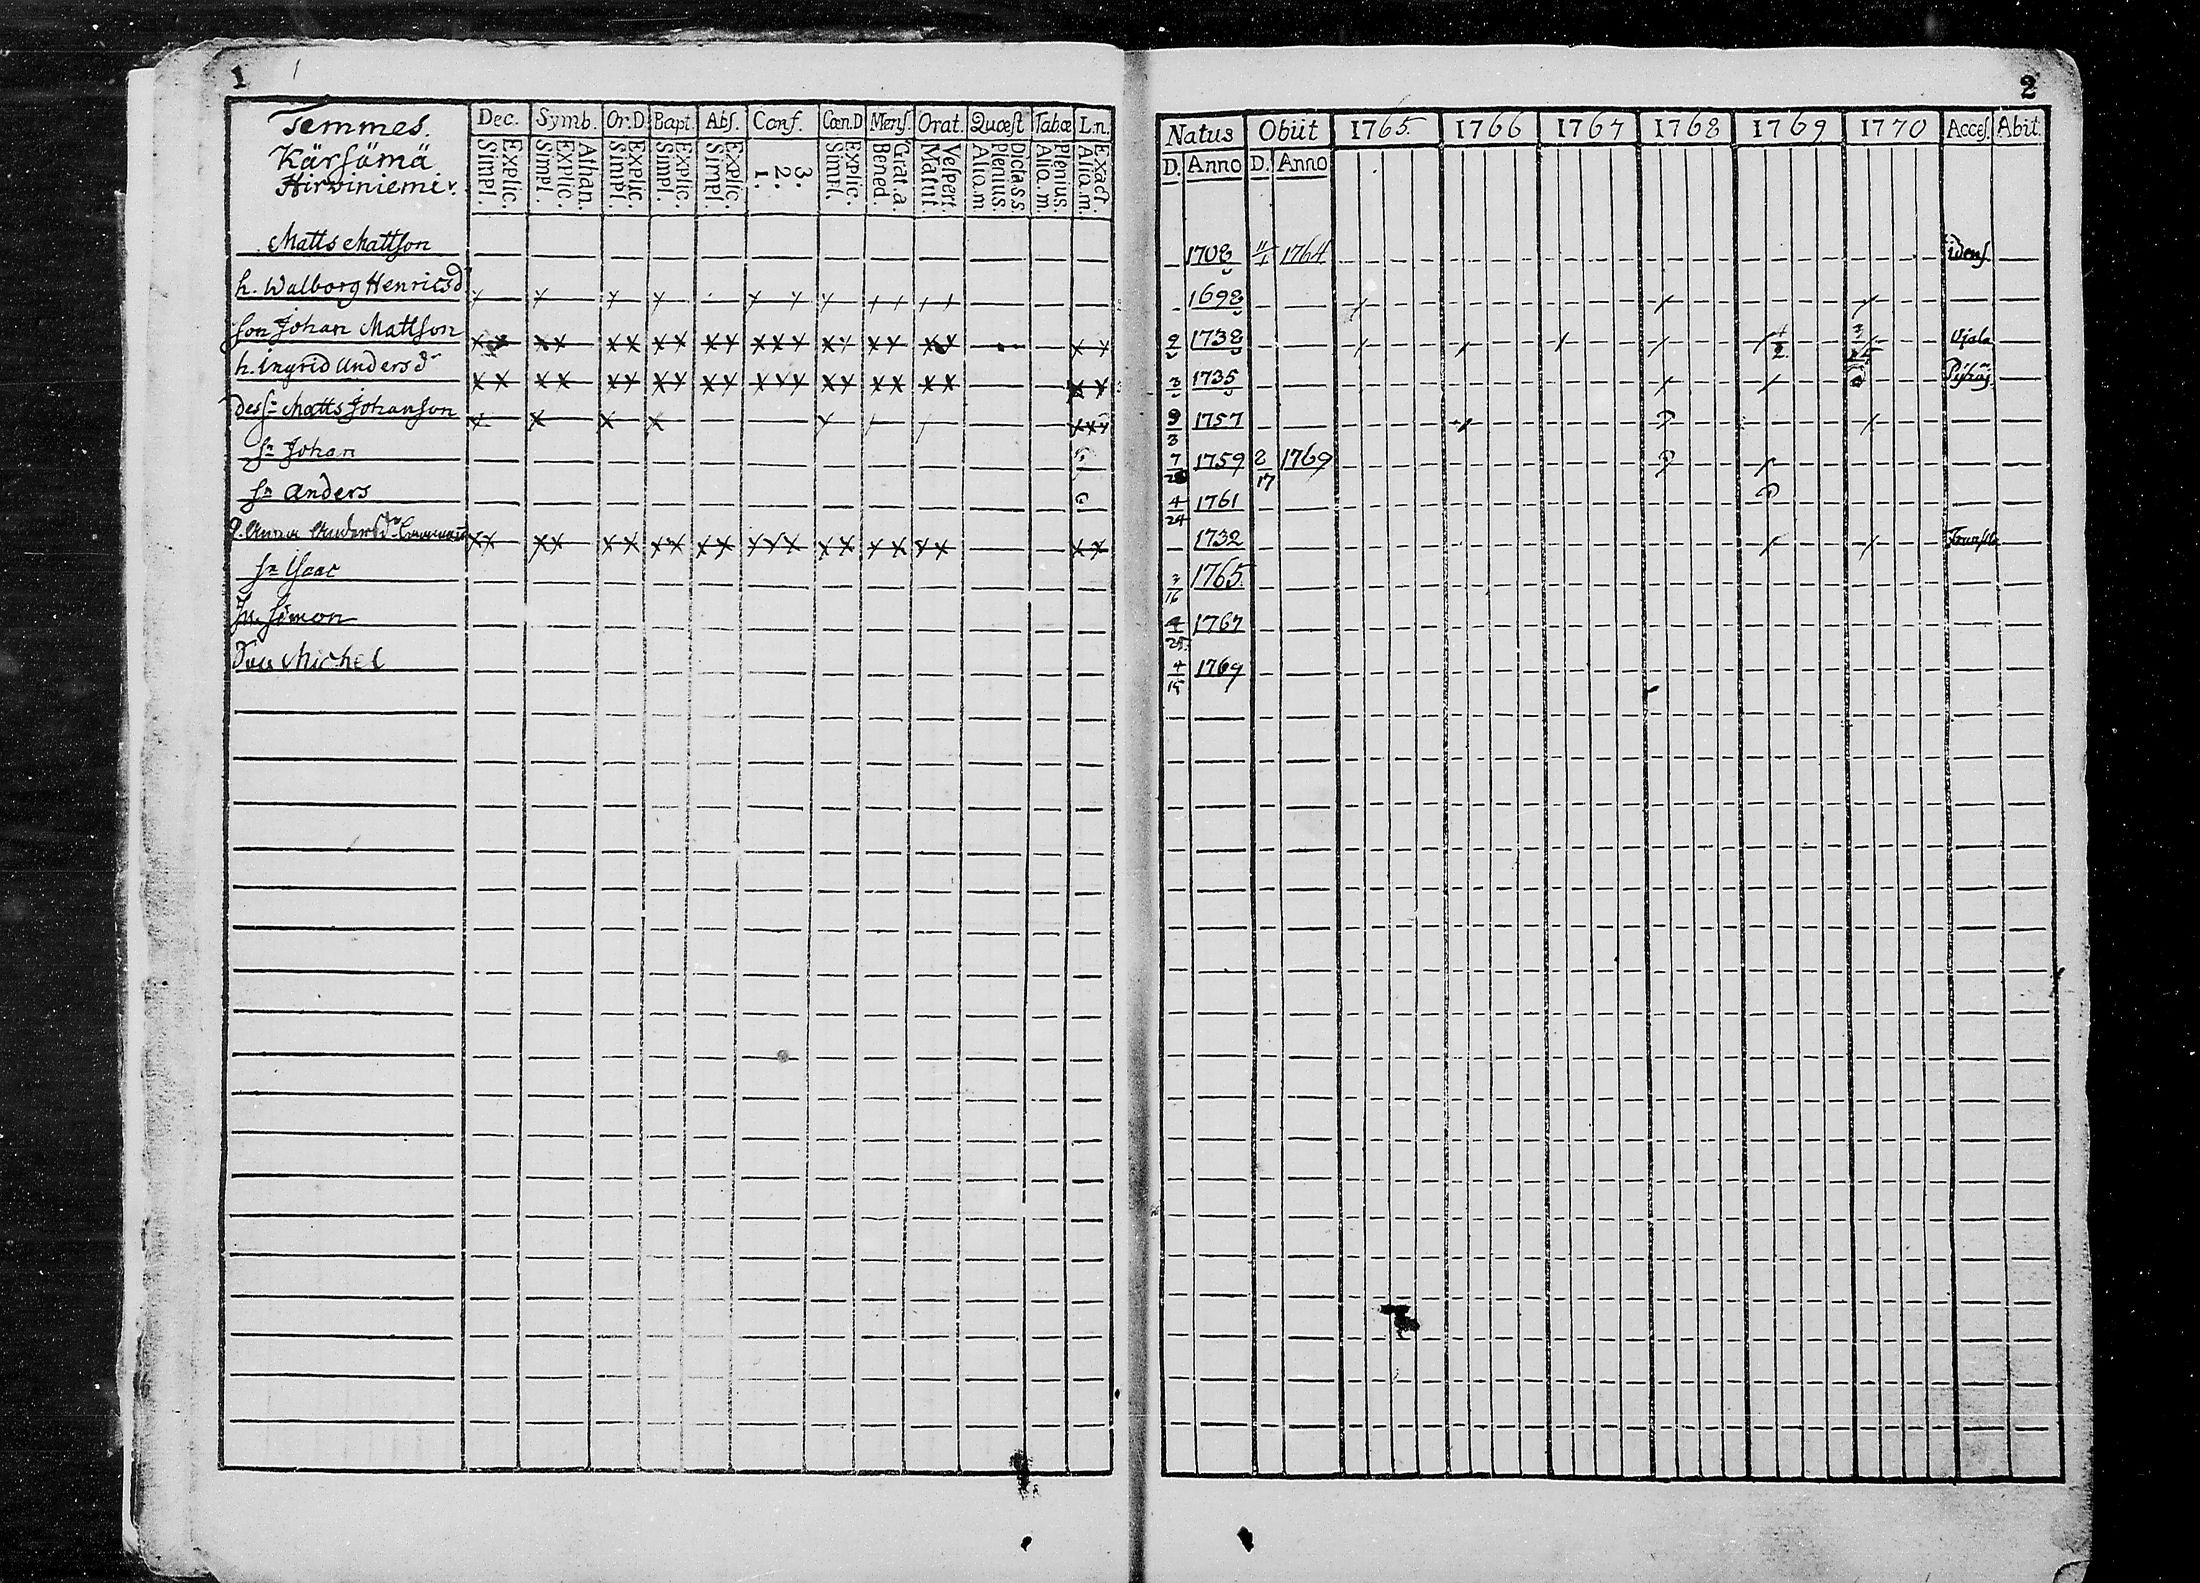 1
Temmes.
Kärsämä
Hirviniemi
Dec. Symb. Or.D. Bapt. Abſ. Conf. Cœn.D Menſ. Orat. Quæſt Tabæ L.n.
Explic. Simpl. Athan. Explic. Simpl. Explic. Simpl. Explic. Simpl. Explic. Simpl. 3. 2. 1. Explic. Simpl. Grat.a. Bened. Veſpert. Matut. Dicta.s.s. Plenius. Aliq.m Plenius. Aliq.m. Exact. Aliq.m.
Matts Mattson
h. Walborg Henricsdr
son Johan Mattson
h. Ingrid Andersdr
Matts Johanson
sn Johan
sn Anders
Anna Andersdr
sn Isaac
sn Simon
Michel
2
Natus Obiit 1765. 1766 1767 1768 1769 1770 Acceſ. Abit.
D. Anno D. Anno
1708 11/1 1764 idens
1698
9 1738
3 1735
9/3 1757
7 1759 2/17 1769
4/24 1761
1732
3/16 1765
4/25 1767
4/15 1769